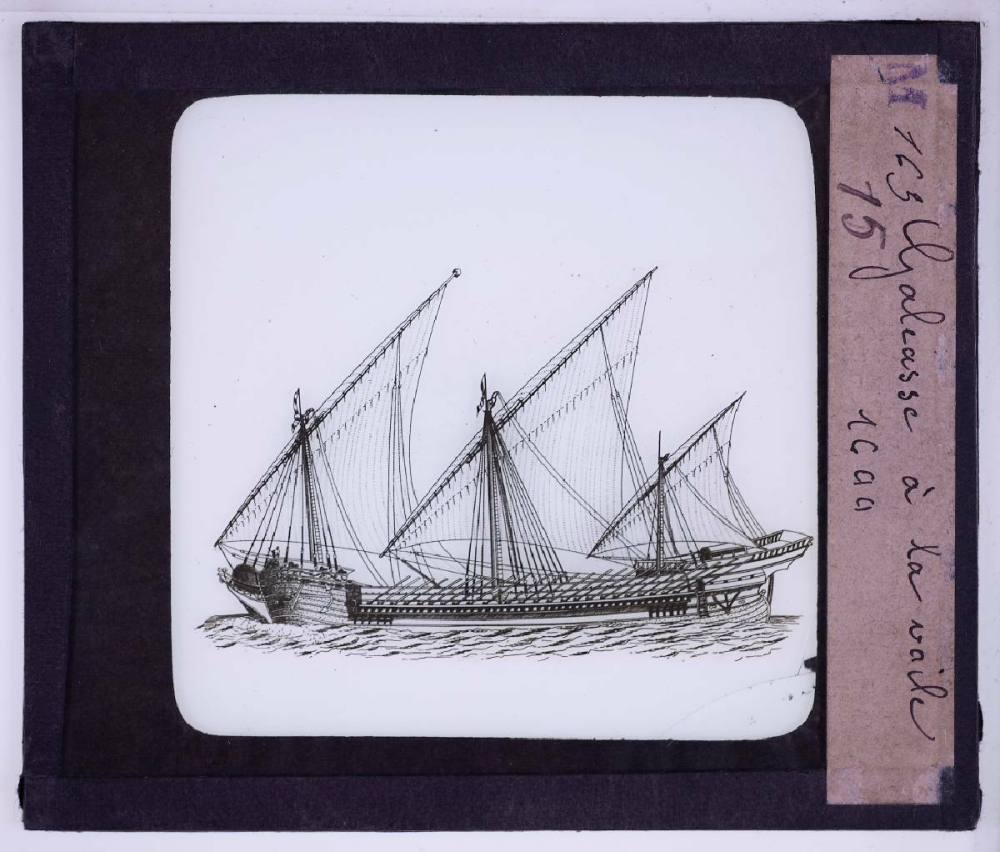 M
163 Galeasse à la voile
15 1699